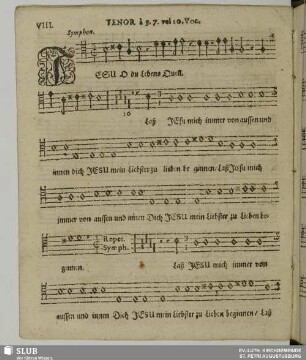 VIII. TENOR à 5. 7. vel 10. Voc.
Symphon.
JESU O du Lebens Quell.
10
Laß JEsu mich immer von aussen und
innen dich JESU mein Liebster zu lieben beginnen / Laß Jesu mich
immer von aussen und innen Dich JESU mein Liebster zu Lieben be-
Repet.
Symph.
ginnen. Laß JESU mich immer von
aussen und innen Dich JESU mein Liebster zu Lieben beginnen / Laß
SLUB
EV.-LUTH. KIRCHGEMEINDE
ST. PETRI AUGUSTUSBURG